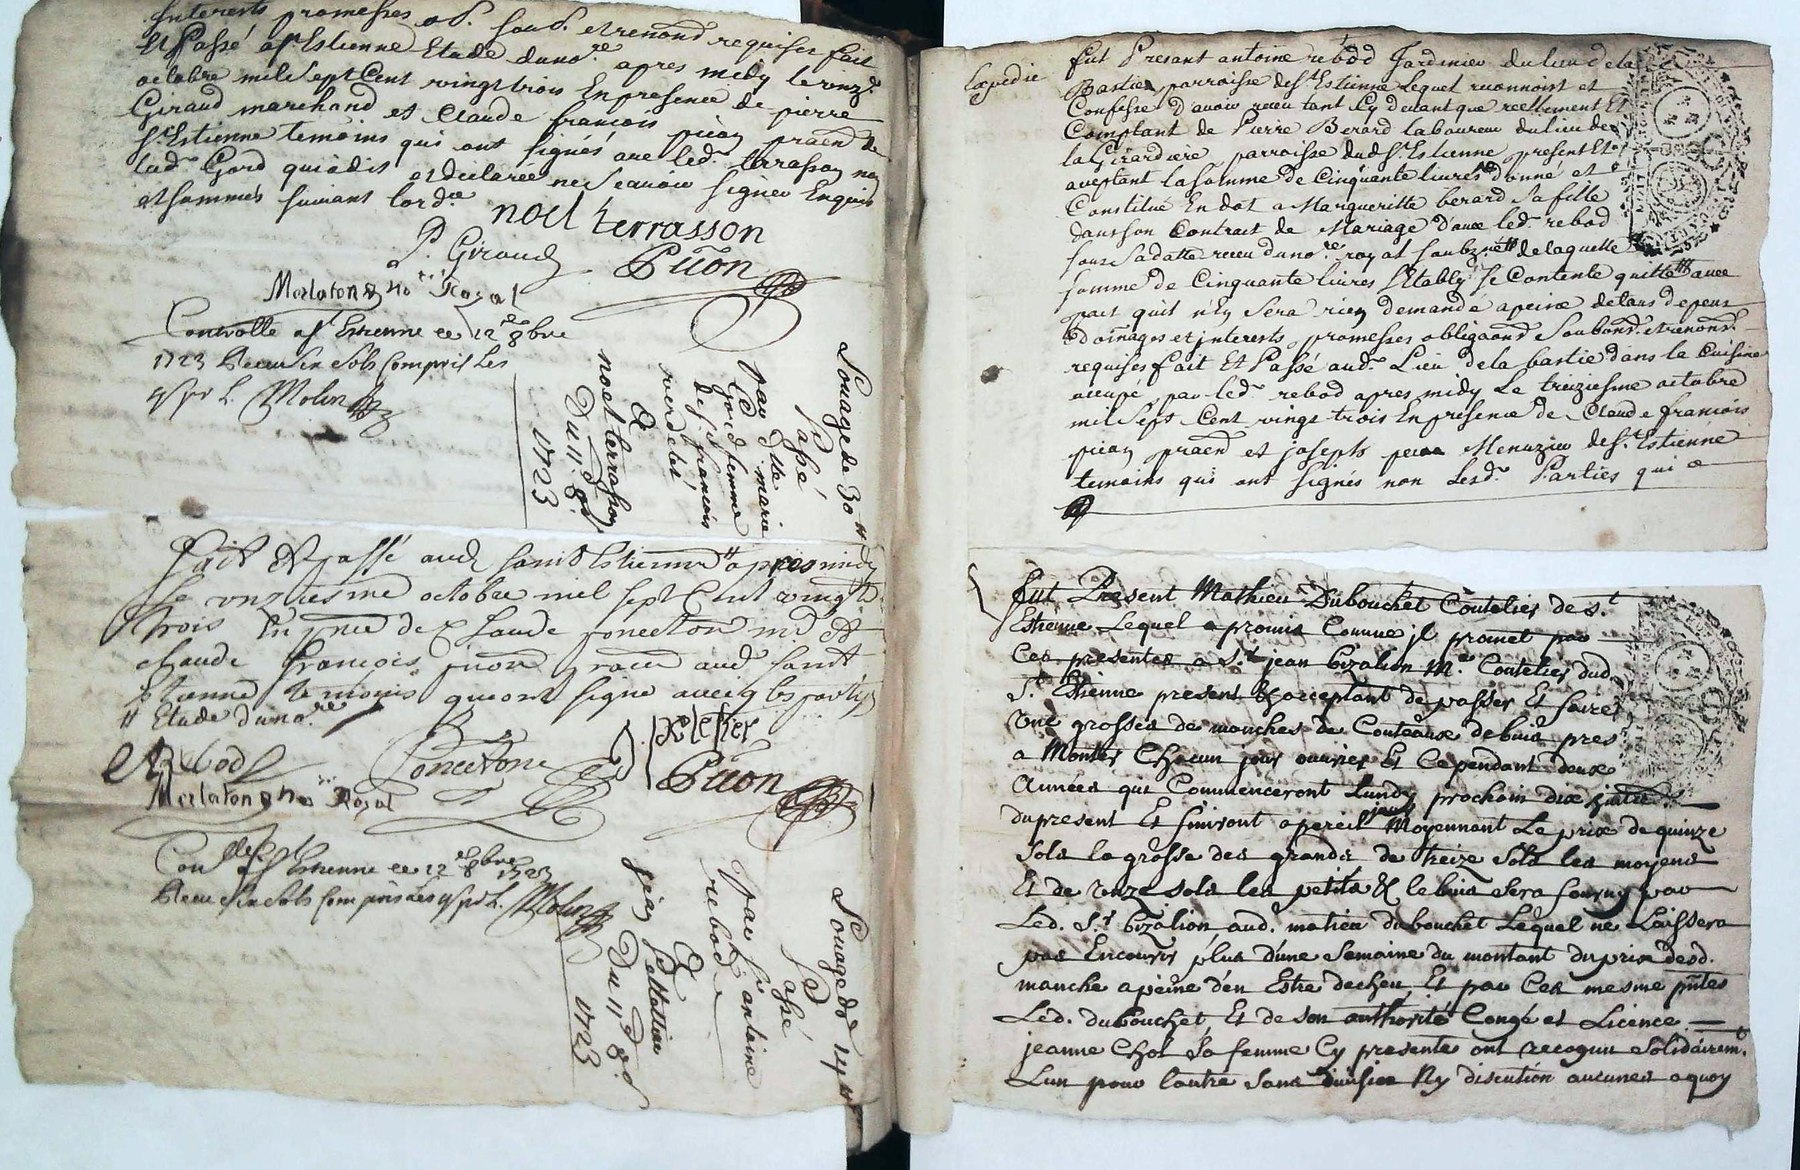 Interests promesses obl. soub. et renond requises fait
Et Passé a st Estienne Etude du no.re apres midy le unz.e
octobre mil sept Cent vingt trois En presence de pierre
Giraud marchand et Claude francois piion praen de
St Estienne temoins qui ont signés avec led. terrasson non
lad. Gord qui a dit et declaree ne scavoir signer Enquis
et sommés suivant lord.ce
noel terrasson
P. Giraud
Piion
Merlaton no.re Royal
Controlle a st Estienne ce 12 8bre
1723 Receu six sols compris les
4s pr L. Molin
Louage de 30 tt
Passé
par d.lle marie
Gord femme
de s.r francois
verdelet
A
noel terrasson
Du 11.e 8.e
1723
Fait et passé aud saint Estienne tt apres midy
le unziesme octobre mil sept Cent vingt
trois En pnce de Claude foncetton m.d et
Claude françois piion praen aud saint
Etienne temoins qui ont signe avec les partys
tt Etude du no.re
A Rebod
foncetton
Peletier
Piion
Merlaton no.re Royal
Con.lle a st Estienne ce 12 8bre 1723
Receu six sols compris les 4s pr L. Molin
Louage de 14 tt
Passé
par s.r antoine
rebod
A
jean Pelletier
Du 11.e 8.e
1723
Expedie
fut Presant antoine rebod Jardinier du lieu de la
Bastie parroisse de st Estienne Lequel reconnoist et
Confesse d'avoir receu tant cy devant que reellement Et
Comptant de Pierre Berard laboureur du lieu de
la Girardiere parroisse dud st Estienne present Et
aceptant la somme de Cinquante livres donné et
Constitué En dot a Margueritte berard Sa fille
dans son Contract de Mariage d'avec led. rebod
sous Sa datte receu du no.re roy.al soubz.né de laquelle
somme de Cinquante livres S'Etably Se Contente quitte avec
pact quil n'En Sera rien demandé a peine de tous depens
domages et interests promesses obligaond Soubond. et renond.
requises fait Et Passé aud. Lieu de la bastie dans la Cuisine
occupé par led. rebod apres midy Le treiziesme octobre
mil Sept Cent vingt trois En presence de Claude francois
piion praend et joseph Menuzier de st Estienne
temoins qui ont signés non Lesd. Parties qui
fut Present Mathieu Dubouchet Coutelier de s.t
Estienne Lequel a promis Comme jl promet par
Ces presentes a S.r jean bizalion M.e Coutelier dud.
S.t Estienne present Et acceptant de passer Et faire
Une grosses de manches de Couteaux de buis pres
a Monter Chacun jour ouvrier Et Ce pendant deux
Années qui Commenceront Lundy prochain dix huite
du present Et finiront a pereil jour Moyennant Le prix de quinze
Sols la grosse des grands de treize Sols les moyens
Et de onze sols les petits Et le buis sera fourny par
Led. S.r bizalion aud. matieu dubouchet Lequel ne Laissera
pas Encourir plus d'une Semaine du montant du prix desd.
manche a peine d'en Estre decheu, Et par Ces mesme pñtes
Led. dubouchet, Et de son authorité Congé et Licence
jeanne Chol Sa femme Cy presente ont recognu solidairem.t
Lun pour lautre sans division Ny discution aucunes a quoy